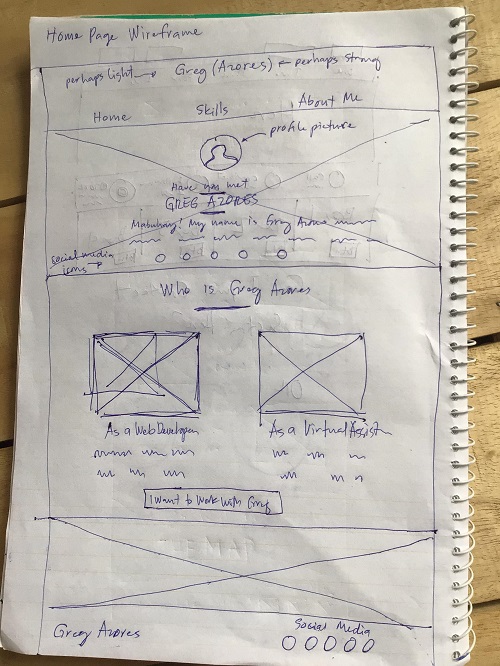 Home Page Wireframe
perhaps light → Greg (Azores) ← perhaps strong
Home Skills About Me
profile picture
Have you met
GREG AZORES
Mabuhay! My name is Greg Azores
social media
icons →
Who is Greg Azores
As a Web Developer As a Virtual Assist
I want to work with Greg
Greg Azores Social Media